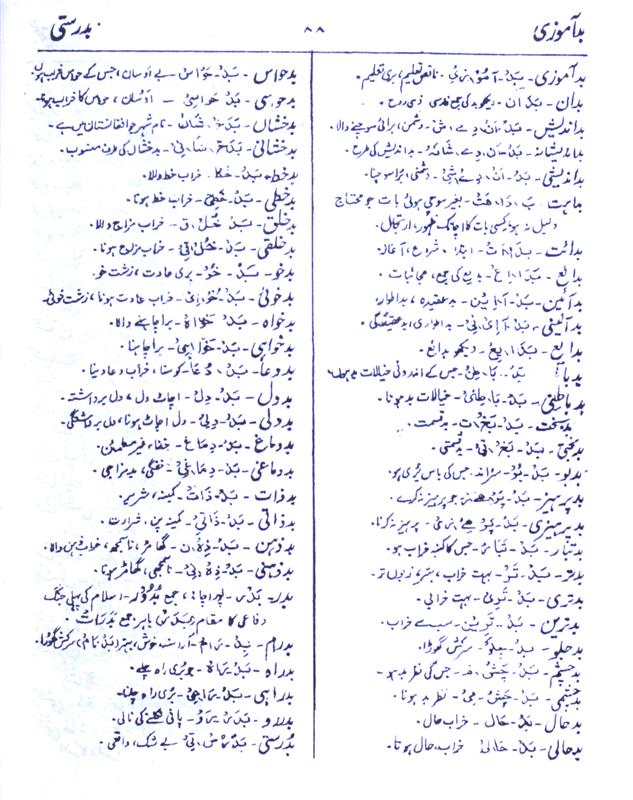 بدآموزی
۸۸
بدرستی
بدآموزی - بَدْ - آمُوْ زِیْ - ناقص تعلیم، بری تعلیم۔
بدان - بَدْ ان - دیکھو بد کی جمع فارسی ذی روح۔
بداندیش - بَدْ - اَنْ، دے، ش - دشمن، برائی سوچنے والا۔
بداندیشانہ - بَدْ - اَن، دے، شَانَہْ - بداندیش کی طرح۔
بداندیشی - بَدْ - اَنْ، دے، شِیْ - دشمنی، برا سوچنا۔
بداہت - بَ، دَا، ہَتْ - بغیر سوچی ہوئی بات جو محتاج
دلیل نہ ہو، کسی بات کا اچانک ظہور، ارتجال۔
بدائت - بِدَائَتْ - ابتدا، شروع، آغاز۔
بدائع - بَدَاءِعْ - بدیع کی جمع، عجائبات۔
بدآئین - بَدْ - آءِیْن - بدعقیدہ، بداطوار۔
بدآئینی - بَدْ - آءِیْ، نِیْ - بداطواری، بدعقیدگی۔
بدایع - بَدَایِعْ - دیکھو بدائع۔
بدباطن - بَدْ - بَا، طِنْ - جس کے اندرونی خیالات بد ہوں۔
بدباطنی - بَدْ - بَا، طِنِیْ - خیالات بد ہونا۔
بدبخت - بَدْ - بَخْ، ت - بدقسمت۔
بدبختی - بَدْ - بَخْ، تِیْ - بدقسمتی۔
بدبو - بَدْ - بُوْ - سڑاند، جس کی باس بری ہو۔
بدپرہیز - بَدْ - پَرْ ھے، ز - جو پرہیز نہ کرے۔
بدپرہیزی - بَدْ - پَرْ ھے، زِیْ - پرہیز نہ کرنا۔
بدتبار - بَدْ - تَبَار - جس کا کنبہ خراب ہو۔
بدتر - بَدْ - تَرْ - بہت خراب، بتر، زبوں تر۔
بدتری - بَدْ - تَرِیْ - بہت خرابی۔
بدترین - بَدْ - تَرِیْن - سب سے خراب۔
بدجلو - بَدْ - جِلَوْ - سرکش گھوڑا۔
بدچشم - بَدْ - چَشْ، م - جس کی نظر بد ہو۔
بدچشمی - بَدْ - چَشْ - مِیْ - نظر بد ہونا۔
بدحال - بَدْ - حَال - خراب حال۔
بدحالی - بَدْ - حَالِیْ خراب حال ہونا۔
بدحواس - بَدْ - حَوَاس - بے اوسان، جس کے حواس خراب ہوں
بدحواسی - بَدْ حَواسِیْ - اوسان، حواس کا خراب ہونا۔
بدخشاں - بَدَخْ، شَاں - نام شہر جو افغانستان میں ہے۔
بدخشانی - بَدَخْ، شَا، نِیْ - بدخشاں کی طرف منسوب۔
بدخط - بَدْ - خَط - خراب خط والا۔
بدخطی - بَدْ - خَطِّیْ - خراب خط ہونا۔
بدخلق - بَدْ خُلْ، ق - خراب مزاج والا۔
بدخلقی - بَدْ - خُلْ، قِیْ - خراب مزاج ہونا۔
بدخو - بَدْ - خُوْ - بری عادت، زشت خو۔
بدخوئی - بَدْ - خُوْ، ئِیْ - خراب عادت ہونا، زشت خوئی۔
بدخواہ - بَدْ خَوَاہْ - برا چاہنے والا۔
بدخواہی - بَدْ - خَوَاہِیْ - برا چاہنا۔
بددعا - بَدْ، دُعَا - کوسنا، خراب دعا دینا۔
بددل - بَدْ - دِلْ - اچاٹ دل، دل برداشتہ۔
بددلی - بَدْ - دِلِیْ - دل اچاٹ ہونا، دل برداشتگی۔
بددماغ - بَدْ - دِمَاغ - خفا، غیر مطمئن۔
بددماغی - بَدْ - دِمَاغِیْ - خفگی، بدمزاجی۔
بدذات - بَدْ - ذَات - کمینہ، شریر۔
بدذاتی - بَدْ - ذَاتِیْ - کمینہ پن، شرارت۔
بدذہن - بَدْ - ذِہْ، ن - گھامڑ، ناسمجھ، خراب ذہن والا۔
بدذہنی - بَدْ - ذِہْ، نِیْ - ناسمجھی، گھامڑ ہونا۔
بدر - بَدْر - پورا چاند، جمع بُدُوْر - اسلام کی پہلی جنگ
دفاعی کا مقام، باہر، جمع بَدَرَات۔
بدرام - بِدْ - رَام - آراستہ، خوش، بہتر، سرکش گھوڑا۔
بدراہ - بَدْ - رَاہْ - جو بری راہ چلے۔
بدراہی - بَدْ - رَاہِیْ - بری راہ چلنا۔
بدرو - بَدْر - رَوْ - پانی نکلنے کی نالی۔
بدرستی - بَدُرُس، تِیْ - بے شک، واقعی۔